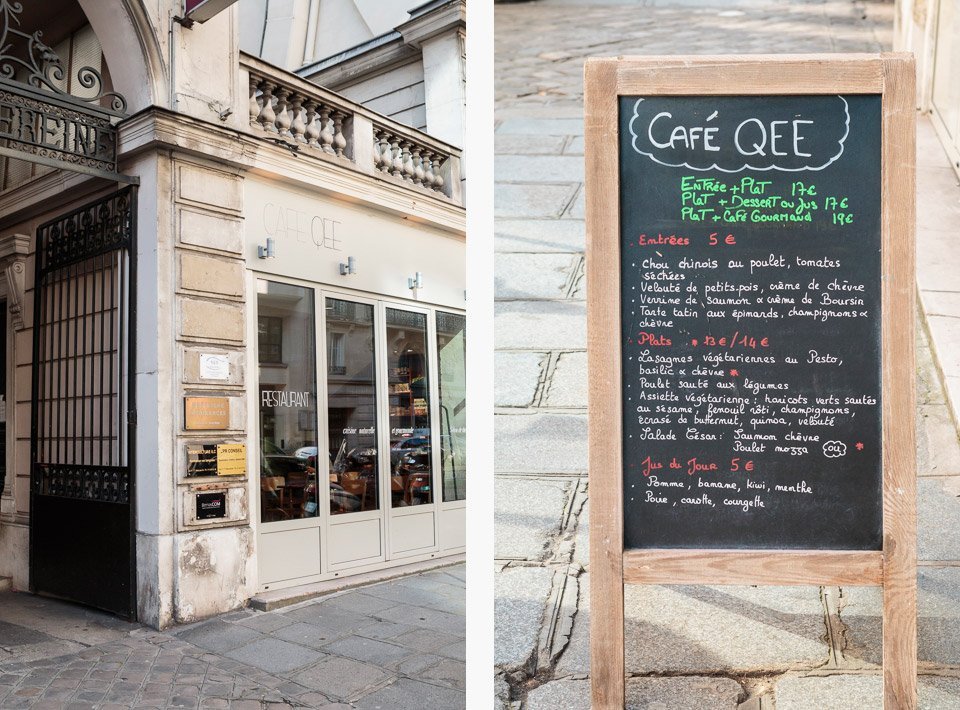 REINE
CAFE QEE
RESTAURANT
cuisine naturelle
et gourmande
CAFÉ QEE
ENTRÉE + PLAT 17€
PLAT + DESSERT OU JUS 17€
PLAT + CAFÉ GOURMAND 19€
Entrées 5 €
• Chou chinois au poulet, tomates
séchées
• Velouté de petits-pois, crème de chèvre
• Verrine de saumon & crème de Boursin
• Tarte tatin aux épinards, champignons &
chèvre
• Plats * 13€/14€
• Lasagnes végétariennes au Pesto,
basilic & chèvre *
• Poulet sauté aux légumes
• Assiette végétarienne : haricots verts sautés
au sésame, fenouil rôti, champignons,
écrasé de butternut, quinoa, velouté
• Salade César : Saumon chèvre
Poulet mozza ou *
• Jus du Jour 5 €
• Pomme, banane, kiwi, menthe
• Poire, carotte, courgette